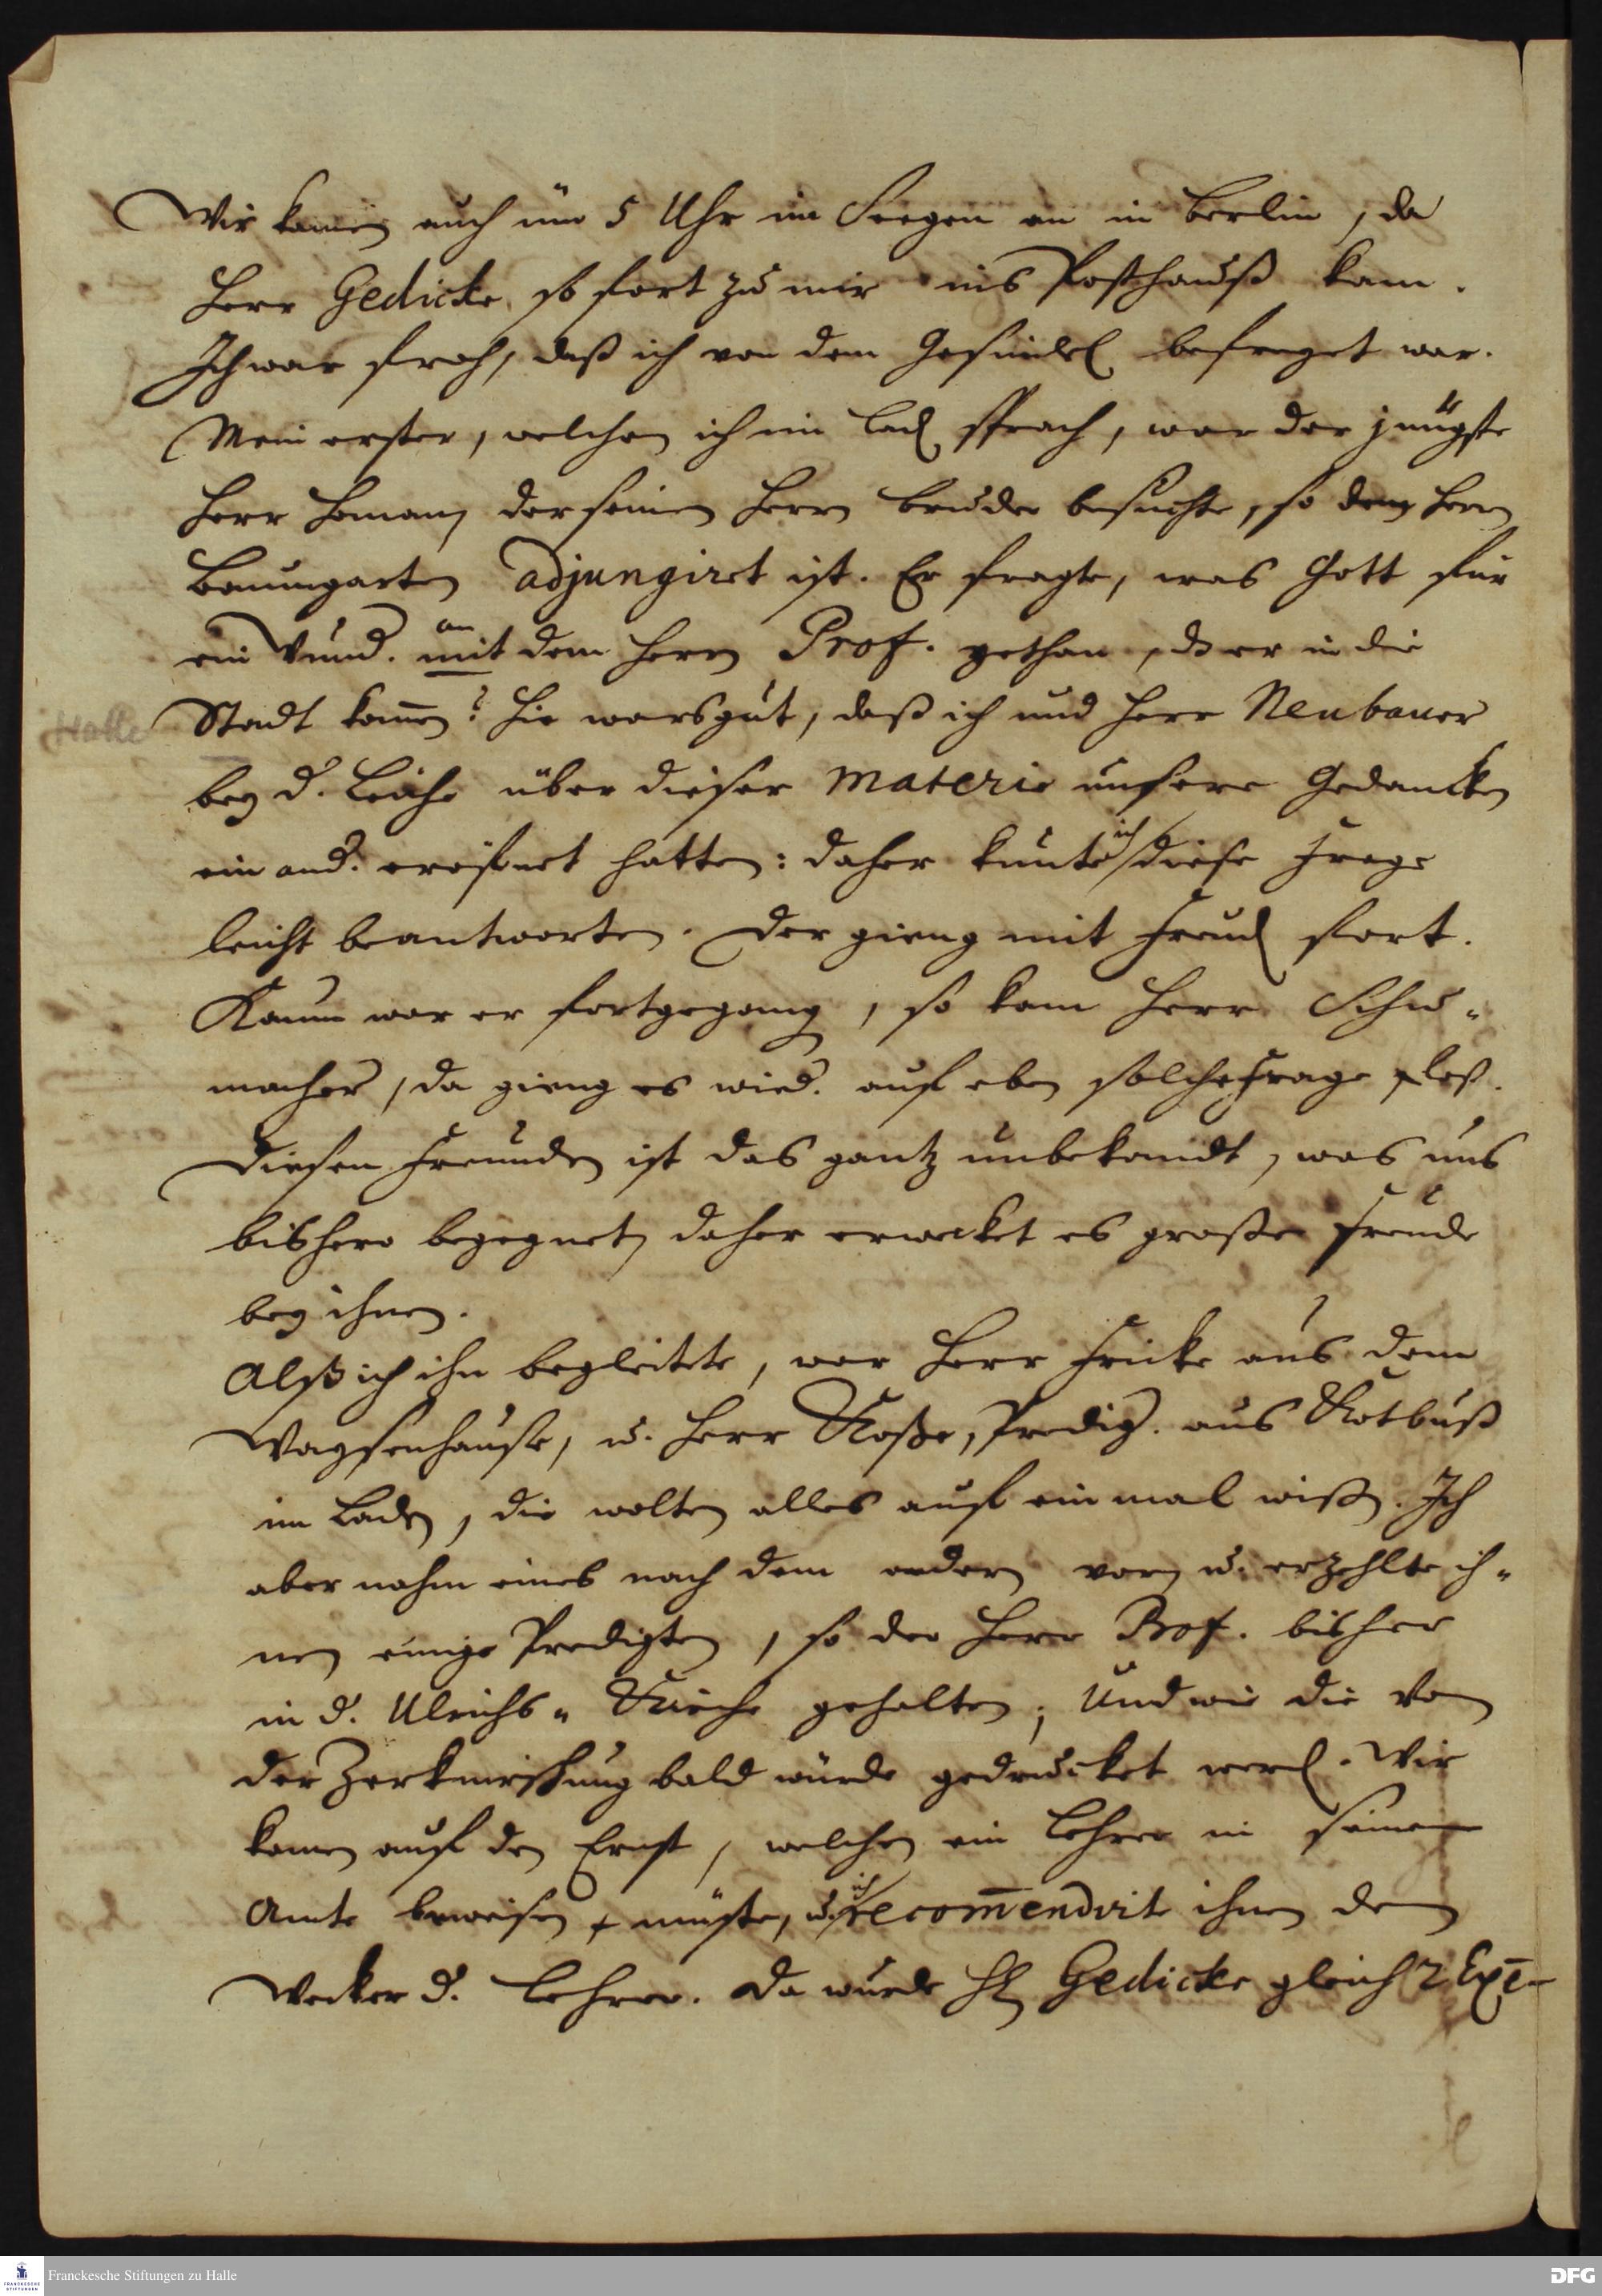 Wir kamen auch um 5 Uhr im Seegen an in Berlin, da
Herr Gedicke so fort zu mir ins Posthauß kam.
Ich war froh, daß ich von dem Gesindel befreyet war.
Mein erster, welchen ich im Lad sprach, war der jüngste
Herr Homann der seinen Herrn Bruder besuchte, so dem Herrn
Baumgarten adjungiret ist. Er fragte, was Gott für
ein Wund. an mit dem Herrn Prof. gethan, dz er in die
Stadt kommen? Hie wars gut, daß ich und Herr Neubauer
Halle
bey d. Leiche über dieser Materie unsere Gedancken
ein and. eröfnet hatten: daher kunte ich diese Frage
leicht beantworten. Der gieng mit Freud fort.
Kaum war er fortgegang, so kam Herr Schu-
macher, da gieng es wied. auf eben solche Frage loß.
Diesen Freunden ist das gantz unbekandt, was uns
bishero begegnet, daher erwecket es große Freude
bey ihnen.
Alß ich ihn begleitete, war Herr Fricke aus dem
Waysenhause, u. Herr Kose, Predig. aus Kotbuß
im Laden, die wolten alles auf ein mal wißen. Ich
aber nahm eines nach dem andern vor, u. erzehlte ih-
nen einige Predigten, so der Herr Prof. bisher
in d. Ulrichs-Kirche gehalten; Und wie die von
der Zerknirschung bald würde gedrucket werd. Wir
kamen auf den Ernst, welchen ein Lehrer in seinem
Amte beweisen müste, u. ich recommendirte ihnen den
Wecker d. Lehrer. Da wurde H Gedicke gleich 2 Exem-
Franckesche Stiftungen zu Halle
DFG